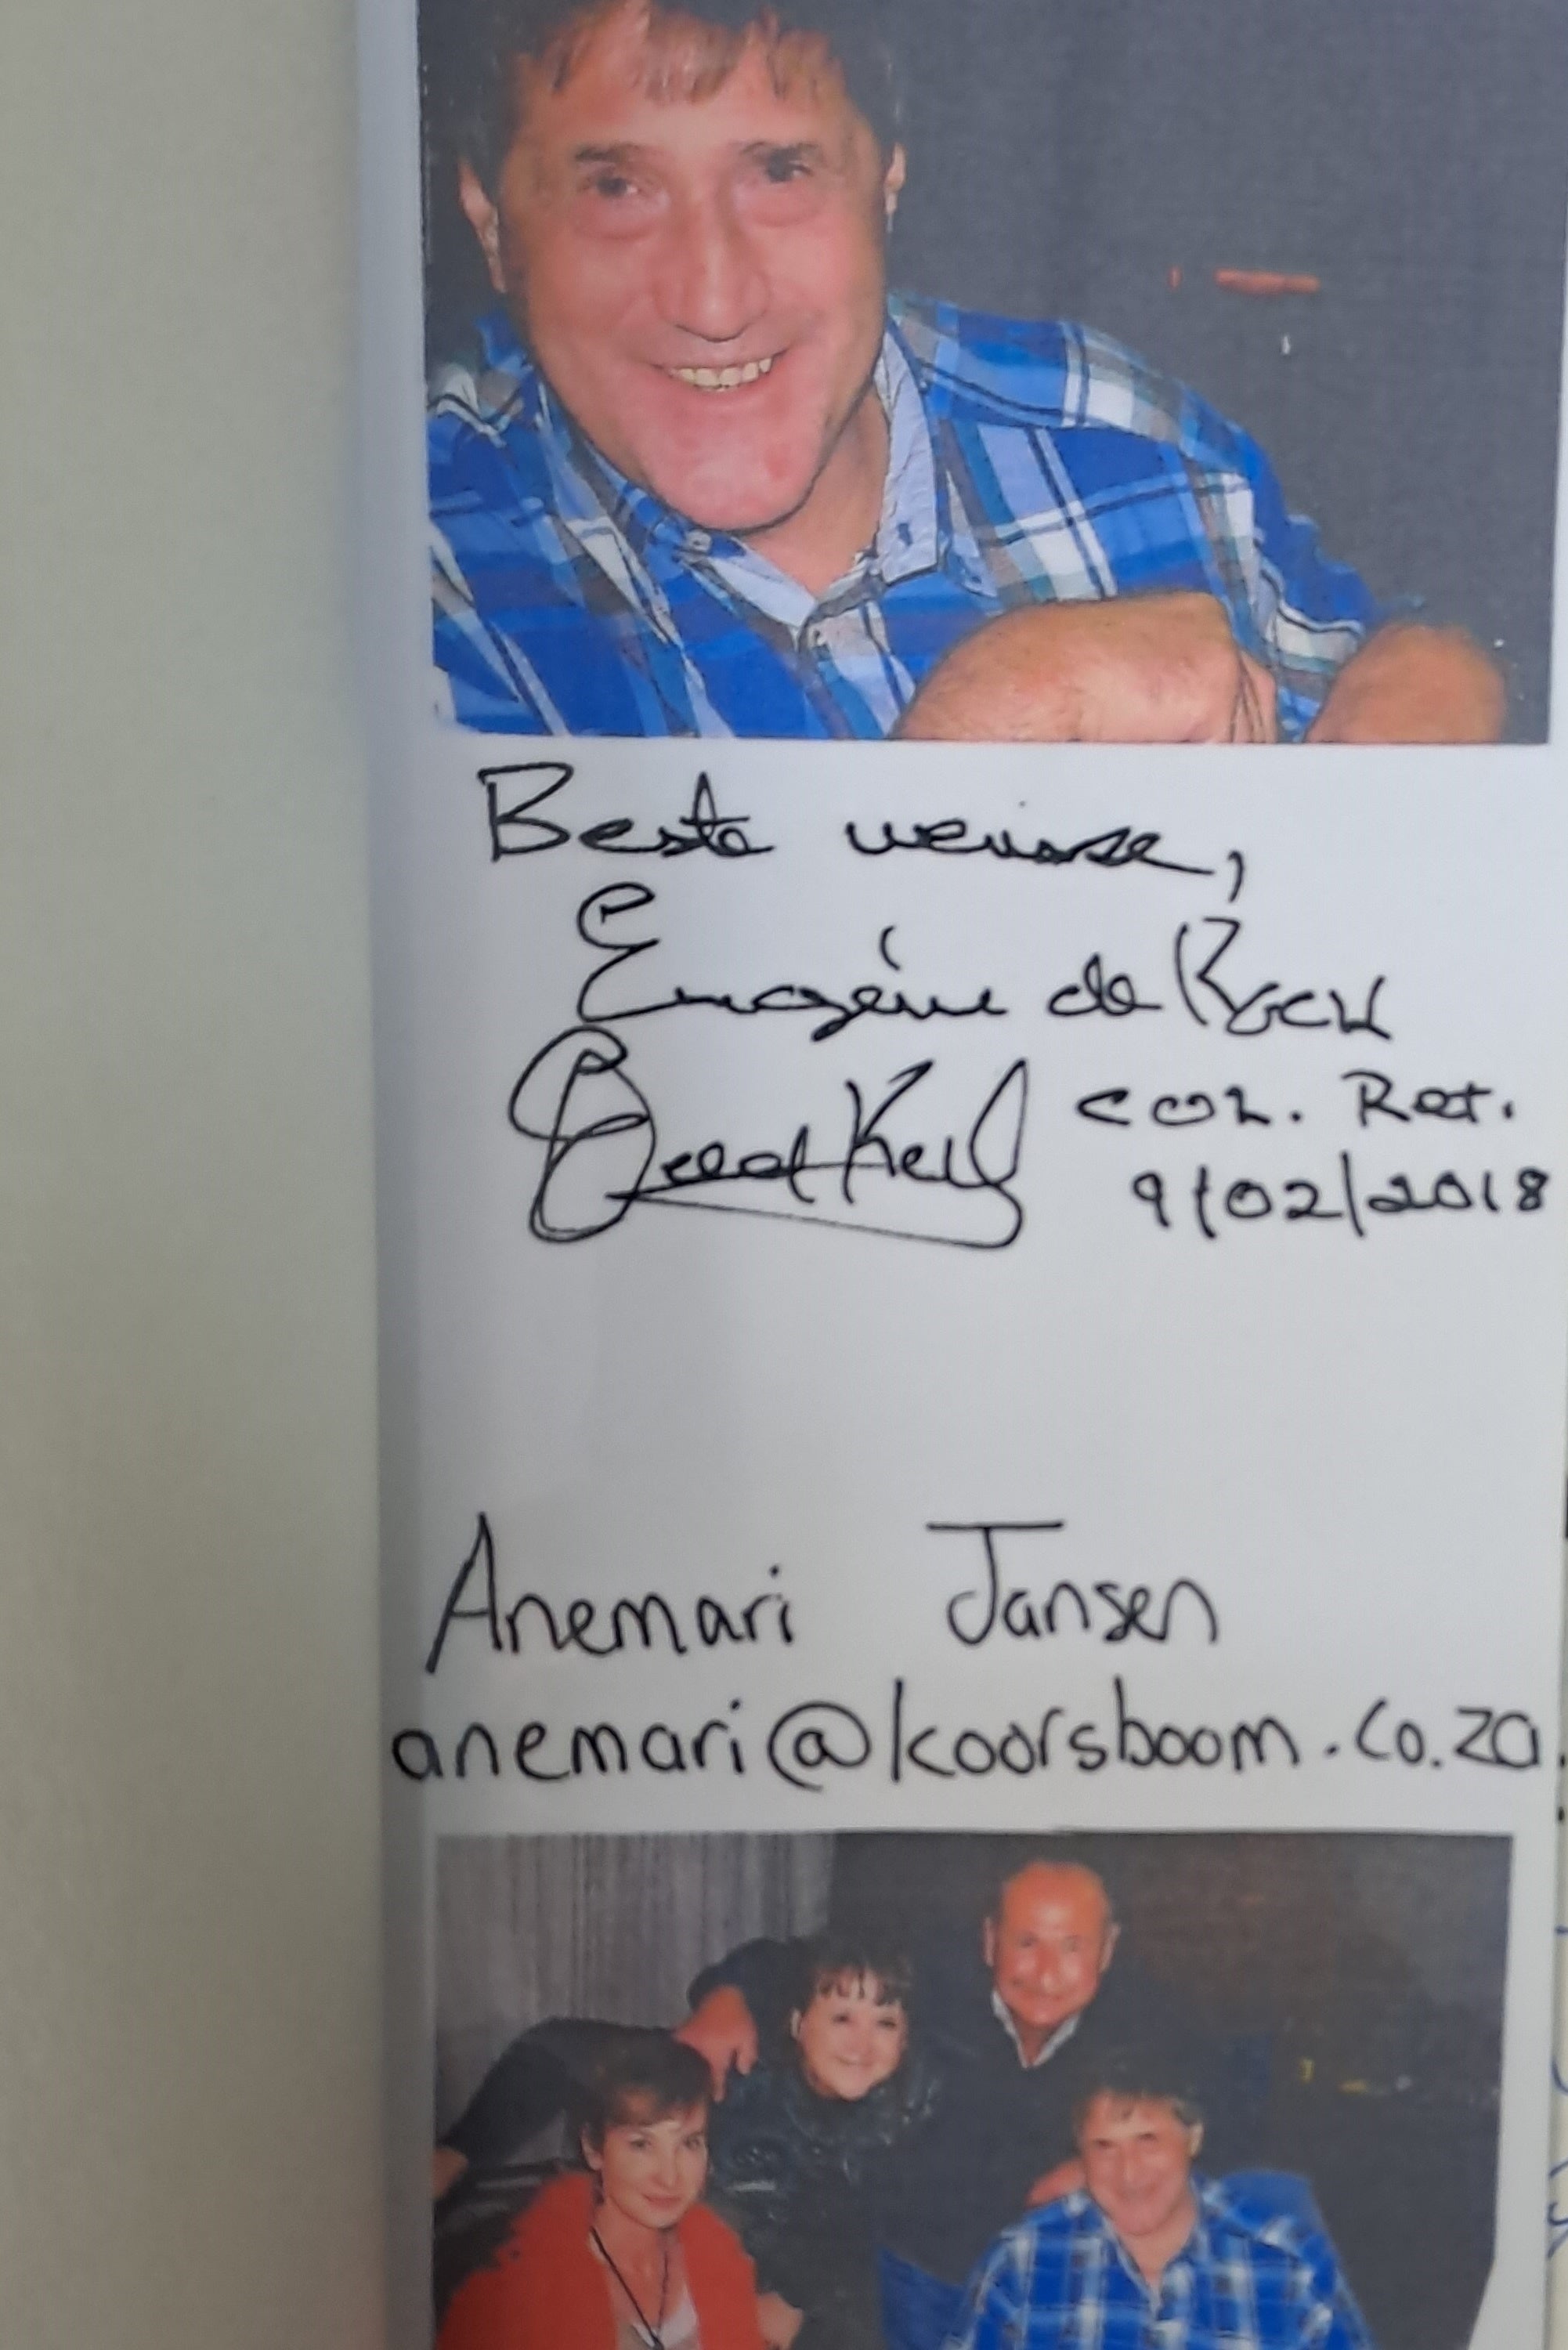 Beste wense,
Eugéne de Kock
Col. Ret.
9/02/2018
Anemari Jansen
anemari@koorsboom.co.za